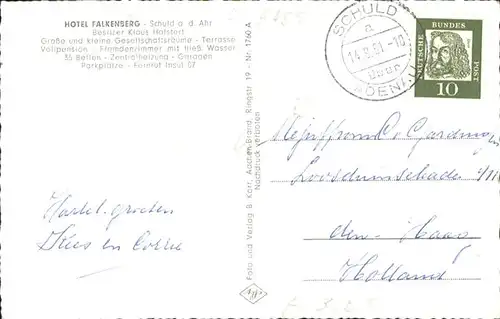 HOTEL FALKENBERG - Schuld a. d. Ahr
Besitzer Klaus Hofstert
Große und kleine Gesellschaftsräume - Terrasse
Vollpension - Fremdenzimmer mit fließ. Wasser
35 Betten - Zentralheizung - Garagen
Parkplätze - Fernruf Insul 07
Foto und Verlag B. Korr, Aachen-Brand, Ringstr. 19 - Nr. 1760 A
Nachdruck verboten
SCHULD
a
14.8.61-10
ADENAU
DEUTSCHE BUNDESPOST
10
Mejuffrouw C. Gardung
Loosduinsekade
den Haag
Holland
Hartel. groeten
Kees en Corrie